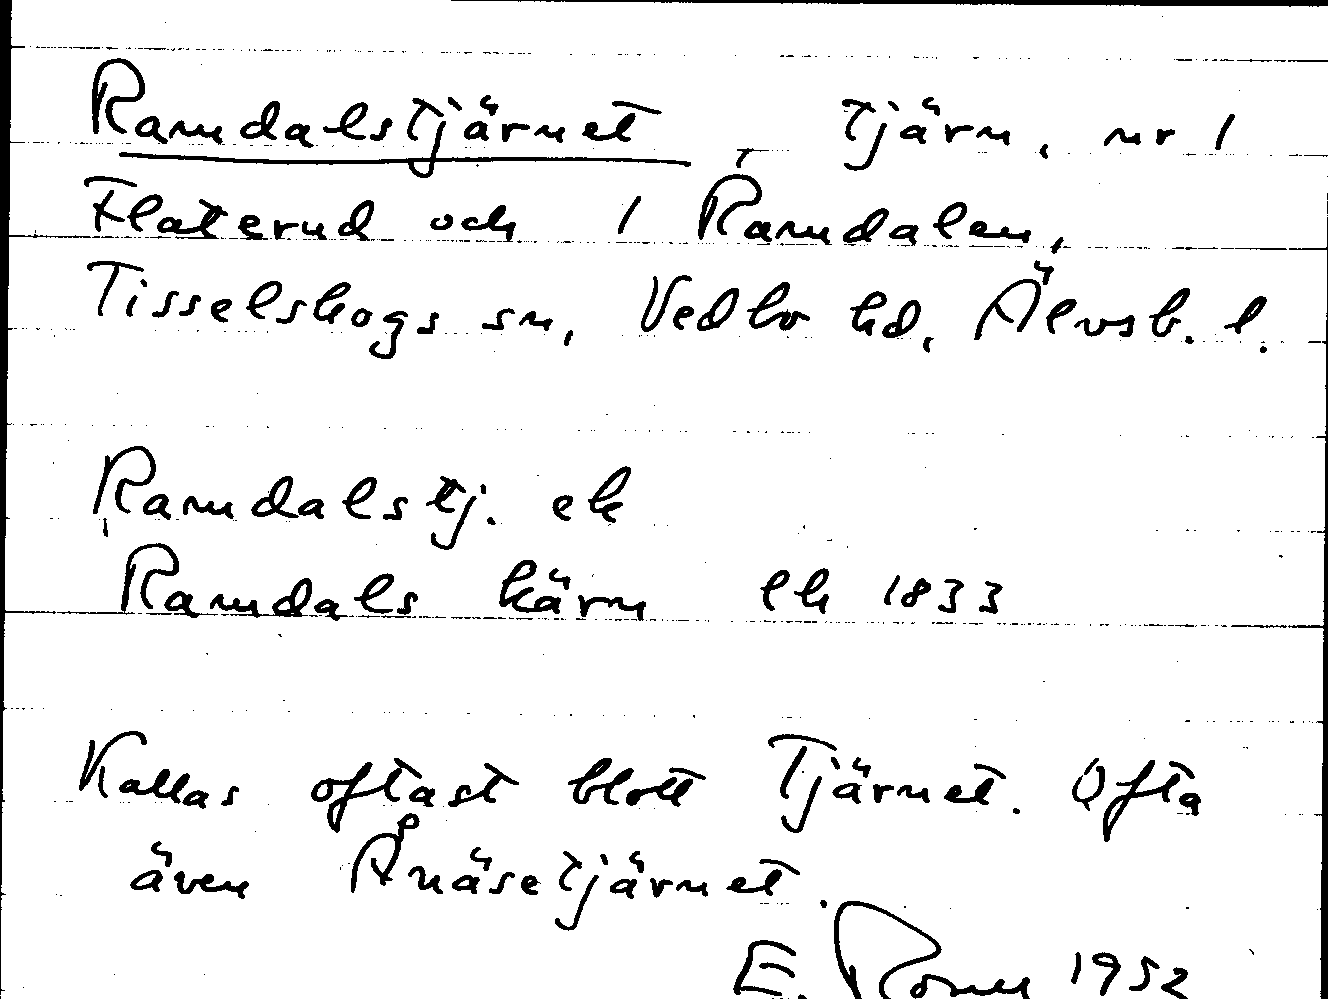 Ramdalstjärnet, Tjärn, nr 1
Flaterud och 1 Ramdalen,
Tisselskogs sn, Vedbo hd, Älvsb. l.
Ramdalstj. ek
Ramdals kärn lh 1833
Kallas oftast blott Tjärnet. Ofta
även Ånäsetjärnet.
E. 1952